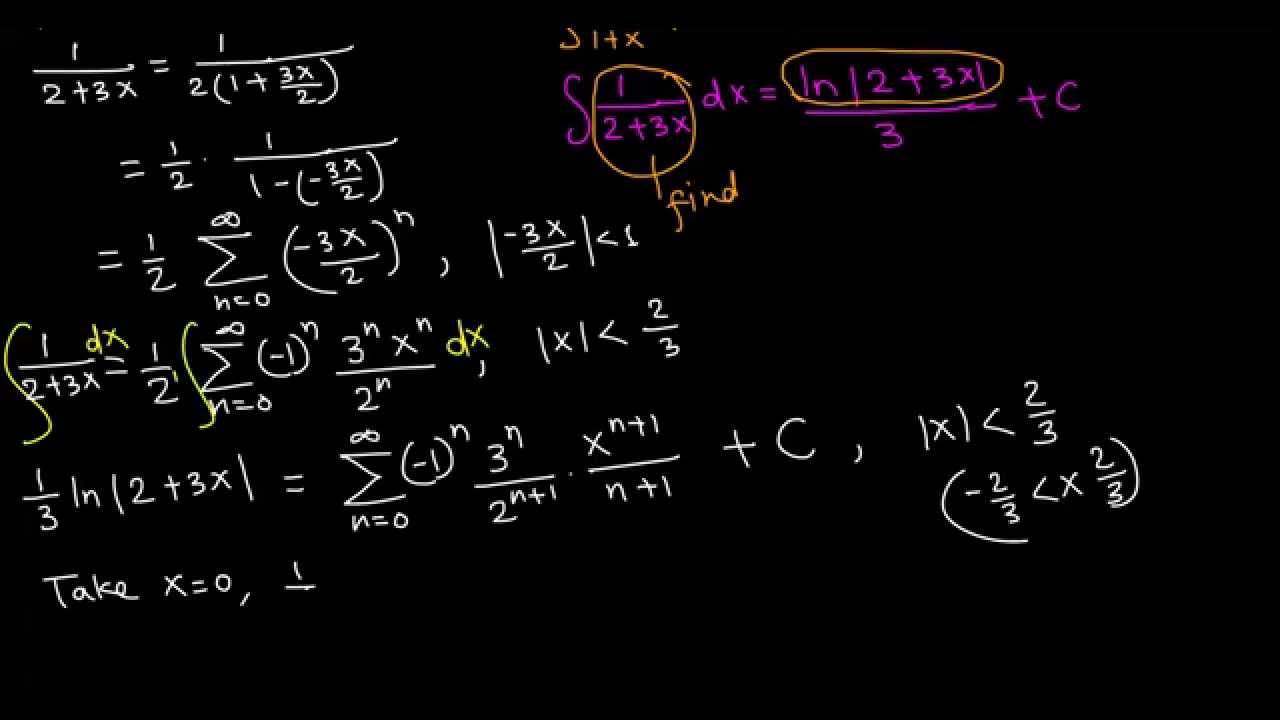 1/(2+3x) = 1/(2(1+3x/2))
= 1/2 · 1/(1-(-3x/2))
= 1/2 ∑_{n=0}^{∞} (-3x/2)^n , |-3x/2| < 1
∫ 1/(2+3x) dx = 1/2 ∫ ∑_{n=0}^{∞} (-1)^n 3^n x^n / 2^n dx , |x| < 2/3
1/3 ln|2+3x| = ∑_{n=0}^{∞} (-1)^n 3^n/2^{n+1} · x^{n+1}/(n+1) + C , |x| < 2/3
(-2/3 < x 2/3)
Take x=0, 1
∫ 1+x
∫ 1/(2+3x) dx = ln|2+3x| / 3 + C
find